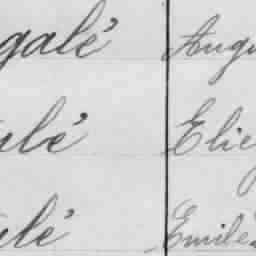 galé Augu
ulé Elie
ulé Emilé